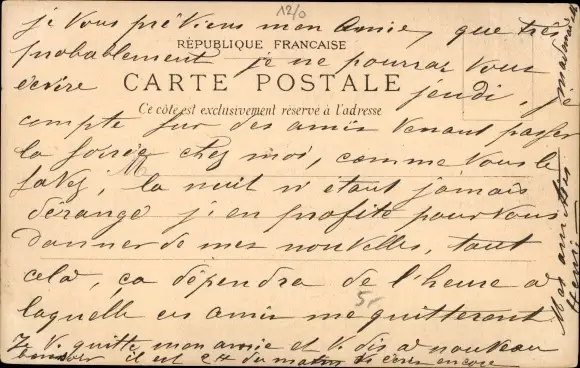 12/0
je vous préviens mon amie, que très
RÉPUBLIQUE FRANCAISE
probablement je ne pourrai vous
CARTE POSTALE
écrire jeudi, je
Ce côté est exclusivement réservé à l'adresse
compte sur des amis venant passer
la soirée chez moi, comme vous le
savez, la nuit n'étant jamais
dérangé j'en profite pour vous
donner de mes nouvelles, tout
cela, ça dépendra de l'heure à
5-
laquelle ces amis me quitteront
Je v. quitte mon amie et v. dis à nouveau
bonsoir il est du matin
encore
Mes amitiés
Henri